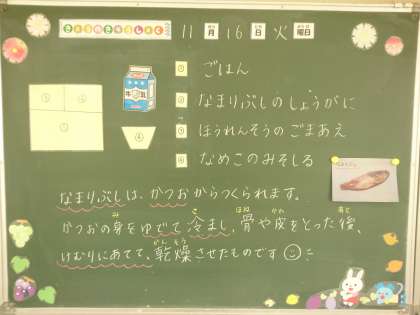 きょうのきゅうしょく
11月16日火曜日
① ごはん
② なまりぶしのしょうがに
③ ほうれんそうのごまあえ
④ なめこのみそしる
牛乳
なまりぶしは、かつおからつくられます。
かつおの身をゆでて冷まし、骨や皮をとった後、
けむりにあてて、乾燥させたものです